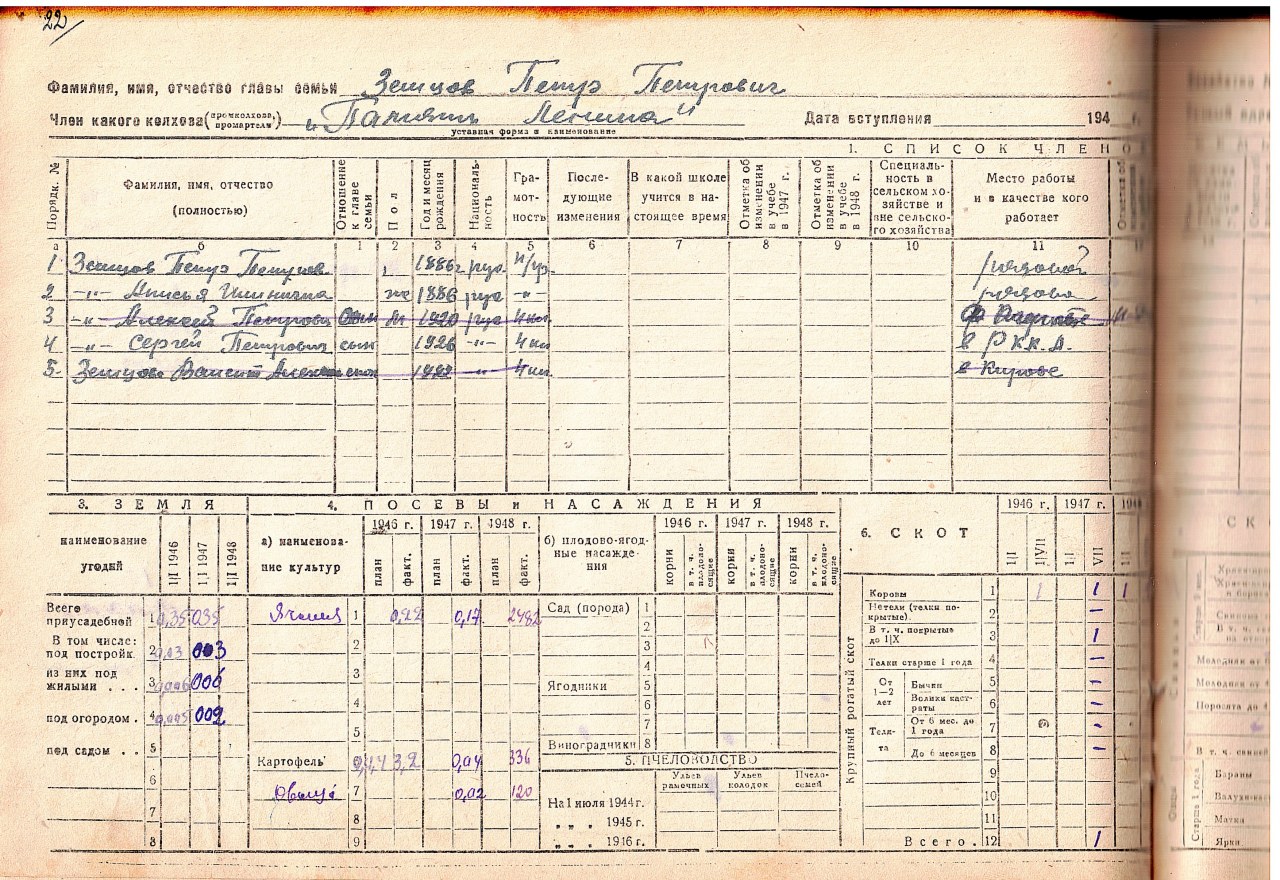 22/
Фамилия, имя, отчество главы семьи Земцов Петр Петрович
Член какого колхоза (промколхоза, промартели) „Память Ленина"
Дата вступления 194 г.
уставная форма и наименование
1. СПИСОК ЧЛЕНО
Порядк. №
Фамилия, имя, отчество (полностью)
Отношение к главе семьи
Пол
Год и месяц рождения
Национальность
Грамотность
Последующие изменения
В какой школе учится в настоящее время
Отметка об изменении в учебе в 1947 г.
Отметка об изменении в учебе в 1948 г.
Специальность в сельском хозяйстве и вне сельского хозяйства
Место работы и в качестве кого работает
а б 1 2 3 4 5 6 7 8 9 10 11
1 Земцов Петр 1886г рус. рядовой
2 -"- Анисья же 1886 рус -"- рядова
3 -"- Алексей Петрович сын м 1920 рус 4 кл
4 -"- Сергей Петрович сын 1926 -"- 4 кл в Р.К.К.А.
5 Земцова 4 кл в Кирове
3. ЗЕМЛЯ
наименование угодий
1|I 1946
1|I 1947
1|I 1948
Всего приусадебной 1 0,35 035
В том числе: под постройк. 2 0,03 003
из них под жилыми . . . 3 006
под огородом . 4 002
под садом . . 5
6
7
8
4. ПОСЕВЫ и НАСАЖДЕНИЯ
а) наименование культур
1946 г. 1947 г. 1948 г.
план факт. план факт. план факт.
Ячмень 1 0,22 0,17 2482
2
3
4
5
Картофель 0,04 336
7 0,02 120
8
9
б) плодово-ягодные насаждения
1946 г. 1947 г. 1948 г.
корни в т. ч. плодоносящие корни в т. ч. плодоносящие корни в т. ч. плодоносящие
Сад (порода) 1
2
3
4
Ягодники 5
6
7
Виноградчики 8
5. ПЧЕЛОВОДСТВО
Ульев рамочных
Ульев колодок
Пчелосемей
На 1 июля 1944 г.
„ „ „ 1945 г.
„ „ „ 1946 г.
6. СКОТ
1946 г. 1947 г.
1|I 1|VII 1|I VII 1|I
Крупный рогатый скот
Коровы 1 1 1 1
Нетели (телки покрытые). 2 –
В т. ч. покрытые до 1|IX 3 1
Телки старше 1 года 4 –
От 1—2 лет
Бычки 5 –
Волики кастраты 6 –
Телята
От 6 мес. до 1 года 7 -
До 6 месяцев 8 -
9
10
11
Всего. 12 1
СК
Молодняк от
Молодняк от
Поросята до 4
Старше 1 года
Бараны
Матки
Ярки